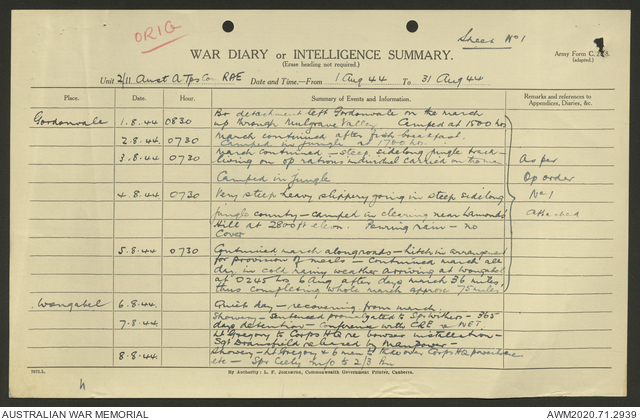 ORIG
Sheet No 1
WAR DIARY or INTELLIGENCE SUMMARY.
(Erase heading not required).
Army Form C.
(adapted.)
Unit 2/11 Aust A Tps Co RAE Date and Time—From 1 Aug 44 To 31 Aug 44
Place. Date. Hour. Summary of Events and Information. Remarks and references to Appendices, Diaries, &c.
Gordonvale 1.8.44 0830 detachment left Gordonvale on the march
up through Mulgrave Valley Camped at 1500 hrs
2.8.44 0730 March continued after breakfast.
Camped in jungle at 1700 hrs.
3.8.44 0730 March continued - steep sidelong jungle track -
living on op rations individual carried on the man As per
Camped in jungle Op order
4.8.44 0730 Very steep heavy slippery going in steep sidelong No 1
jungle country - camped in clearing near Lamonds attached
Hill at 2800 ft elevn. Pouring rain - no
cover
5.8.44 0730 Continued march along roads - hitch in arrangement
for provision of meals - continued march all
day in cold rainy weather arriving at Wongabel
at 0245 hrs 6 Aug after days march 36 miles,
thus completing whole march approx 75 miles
Wongabel 6.8.44. Quiet day - recovering from march.
7.8.44. Showery - Sentence promulgated to Spr Withers - 365
days detention - Conference with CRE &
Lt Gregory to Corps HQ re bowser installation -
Sgt released by Manpower -
8.8.44. Showery - Lt Gregory & 6 men to Corps HQ
etc - Spr to 2/3
By Authority: L. F. Johnston, Commonwealth Government Printer, Canberra.
4
AUSTRALIAN WAR MEMORIAL
AWM2020.71.2939